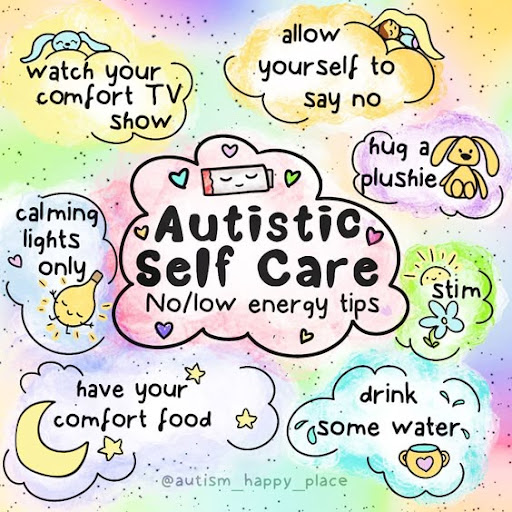 watch your
comfort TV
show
allow
yourself to
say no
hug a
plushie
calming
lights
only
Autistic
Self Care
No/low energy tips
stim
have your
comfort food
drink
some water
@autism_happy_place